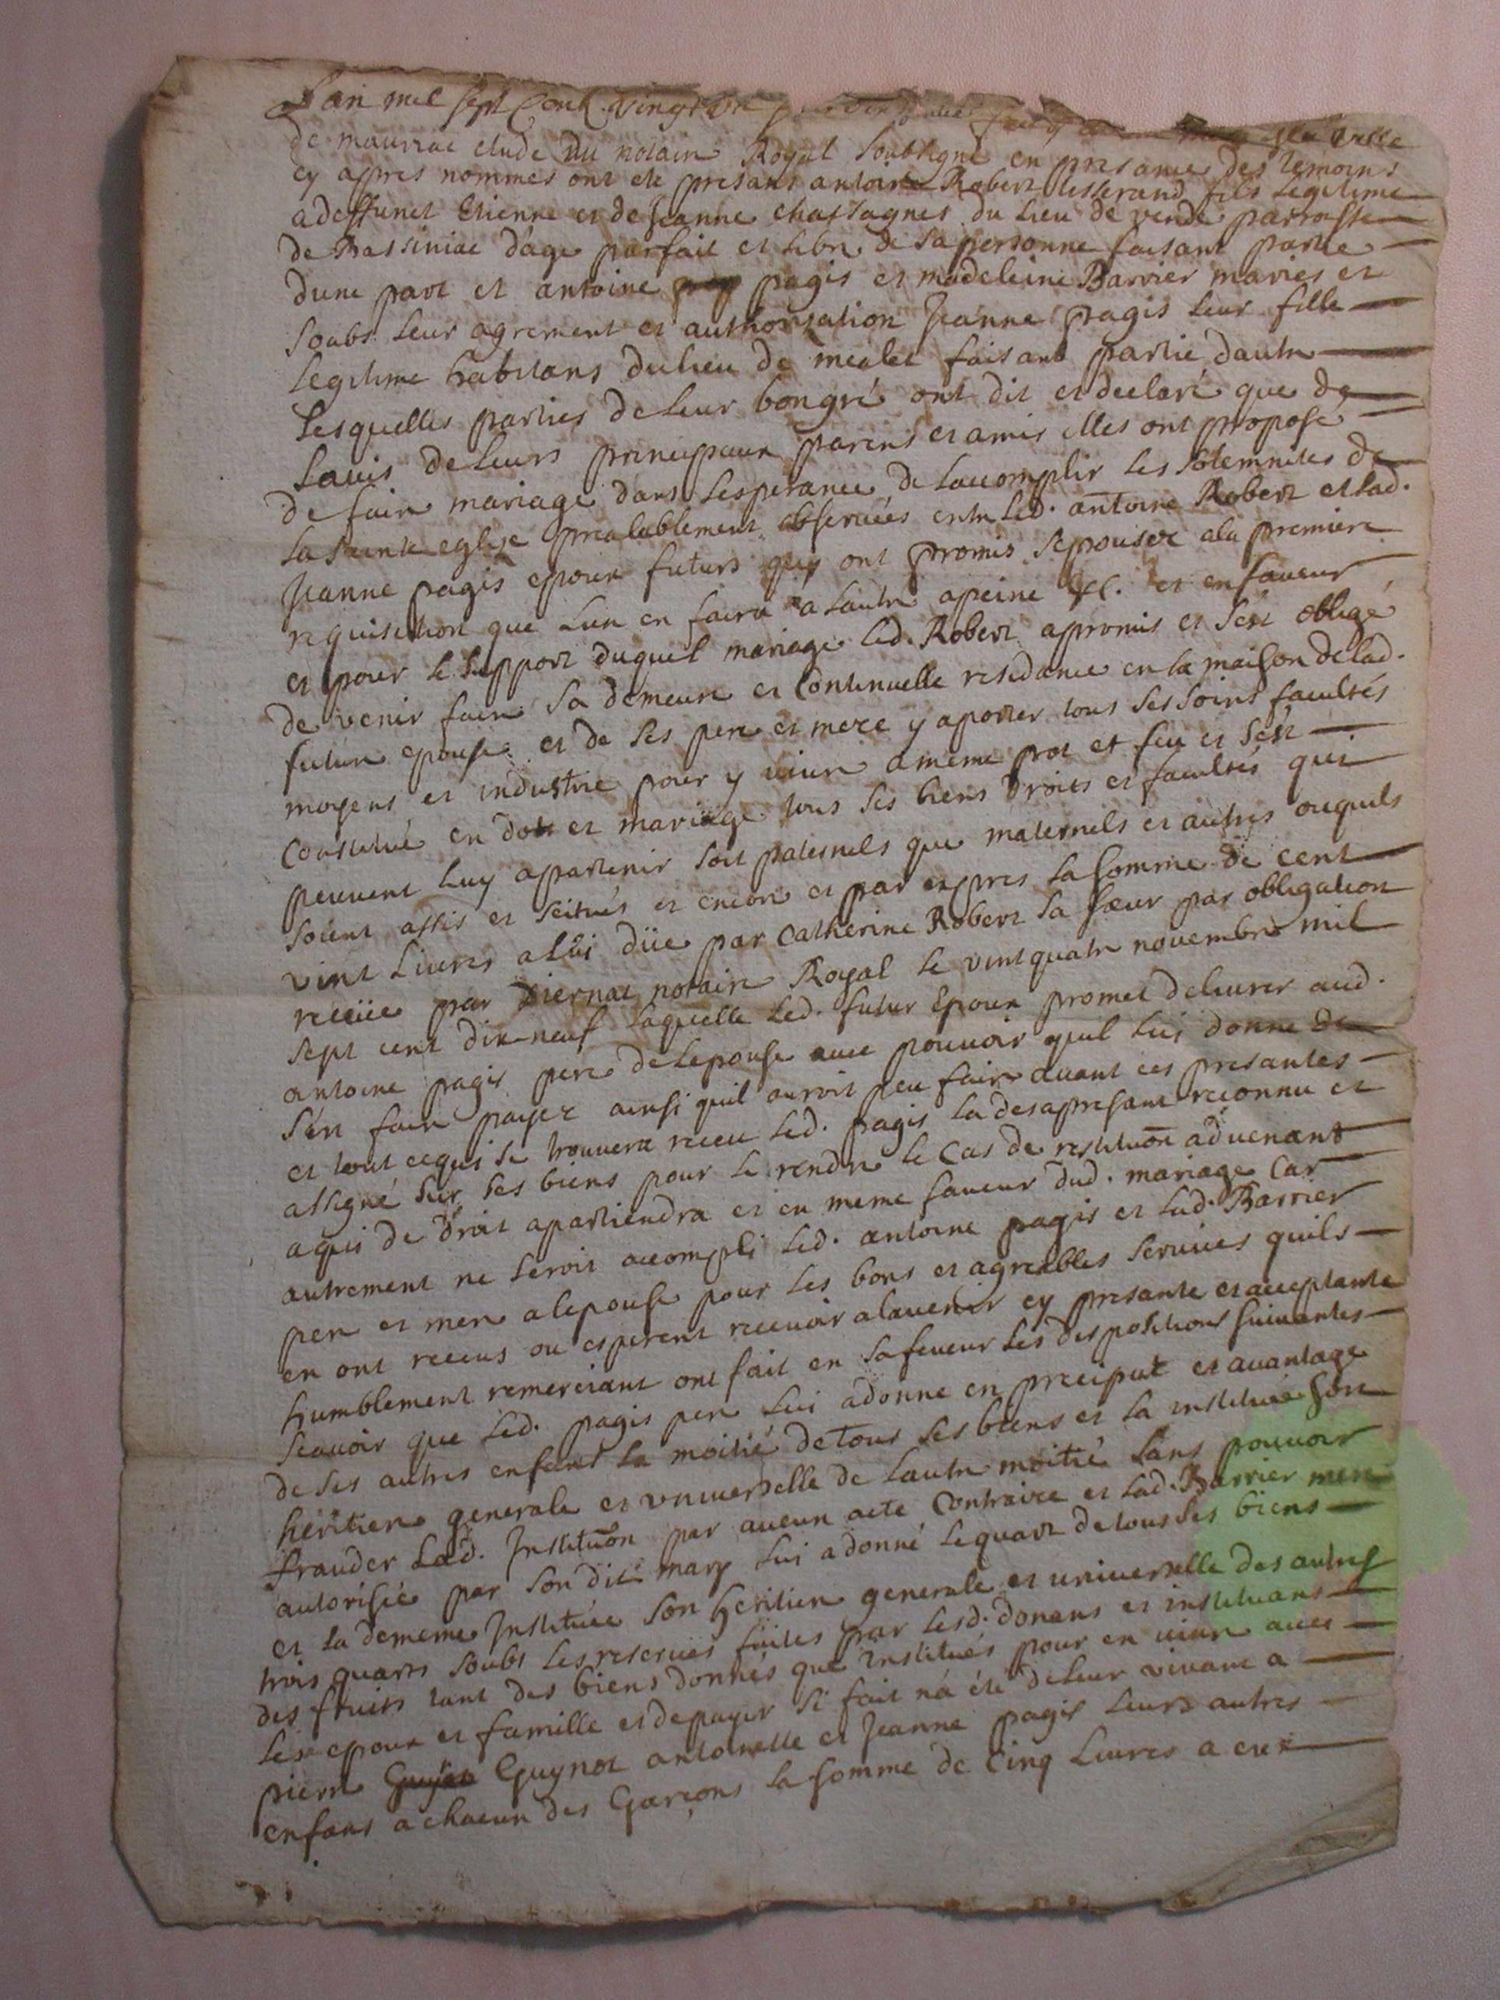 Lan mil sept Cent vingt
de mauriac etude du notaire Royal Soubsigné en presance des temoins
cy appres nommés ont été presans antoine Robert tisserand fils Legitime
a deffunct Etienne et de Jeanne chassagnes du Lieu de vende parroisse
de Bassiniac dage parfait et Libre de sa personne faisant partie
dune part et antoine pagis et madeleine Barrier maries et
soubs leur agrement et authorisation Jeanne pagis leur fille
Legitime habitans du lieu de mealet faisant partie dautre
Lesquelles parties de Leur bongré ont dit et declaré que de
Lavis de Leurs principaux parens et amis elles ont proposé
de faire mariage dans Lesperance de Lacomplir Les Solemnites de
La Sainte eglise prealablement observées entre Led. antoine Robert et Lad.
Jeanne pagis epoux futurs qui ont promis Sepouser ala premiere
requisition que Lun en faira a Lautre apeine &c. et en faveur
et pour Le Support duquel mariage Led. Robert apromis et Sest obligé
de venir faire Sa demeure et Continuelle residance en la maison de Lad.
future epouse et de Ses pere et mere y aporter tous Ses Soins facultés
moyens et industrie pour y vivre a meme pot et feu et Sest
Constitué en dot et mariage tous Ses biens Droits et facultés qui
peuvent Luy apartenir Soit paternels que maternels et autres ouquils
Soient assis et Scitués et encore et par expres La Somme de cent
vint Livres a Lui düe par Catherine Robert Sa Sœur par obligation
reçüe par notaire Royal Le vintquatre novembre mil
Sept cent dix-neuf Laquelle Led. futur Epoux promet delivrer aud.
antoine pagis pere de Lepouse avec pouvoir quil Lui donne de
Sen faire payer ainsi quil auroit peu faire avant ces presantes
et tout cequi Se trouvera receu Led. pagis La desapresant reconnu et
assigné Sur Ses biens pour Le rendre Le Cas de restituõn advenant
aqui de Droit apartiendra et en meme faveur dud. mariage Car
autrement ne Seroit acompli Led. antoine pagis et Lad. Barrier
pere et mere a Lepouse pour Les bons et agreables Services quils
en ont receus ou esperent recevoir alavenir cy presante et acceptante
humblement remerciant ont fait en Sa faveur Les dispositions Suivantes
Sçavoir que Led. pagis pere Lui adonne en preciput et avantage
de Ses autres enfans La moitié de tous Ses biens et La instituée Son
héritiere generale et universelle de Lautre moitié Sans pouvoir
frauder Lad. Instituõn par aucun acte Contraire et Lad. Barrier mere
autorisée par Son dit mary Lui a donné Le quart de tous Ses biens
et La dememe Instituée Son heritiere generale et universelle des autres
trois quarts Soubs Les reserves faites par Lesd. donans et instituans
des fruits tant des biens donnés que institués pour en vivre avec
Les epoux et famille et depayer Si fait na été de Leur vivant a
pierre Guynot antoinette et Jeanne pagis Leurs autres
enfans a chacun des Garçons La Somme de Cinq Livres a eux